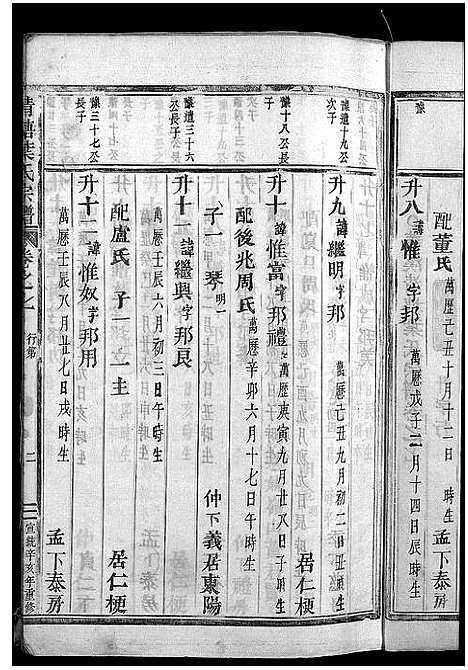 配董氏 萬曆己丑十月十二日 時生 孟下泰房
豫
升八 諱惟 字邦 萬曆戊子二月十四日辰時生
豫遺十九公次子
升九 諱繼明 字邦 萬曆己丑九月初二日丑時生 居仁梗
豫十八公長子
升十 諱惟富 字邦禮 萬曆庚寅九月廿八日子時生
配後兆周氏 萬曆辛卯六月十七日午時生
子一 琴 明一 仲下義居東陽
豫遺三十六公長子
升十一 諱繼興 字邦良 萬曆壬辰六月初三日午時生
配盧氏 子一 一主 居仁梗
豫三十七公長子
升十二 諱惟奴 字邦用 萬曆壬辰八月廿七日戌時生 孟下泰房
清塘葉氏宗譜 卷之 行第 二 宣統辛亥年重修